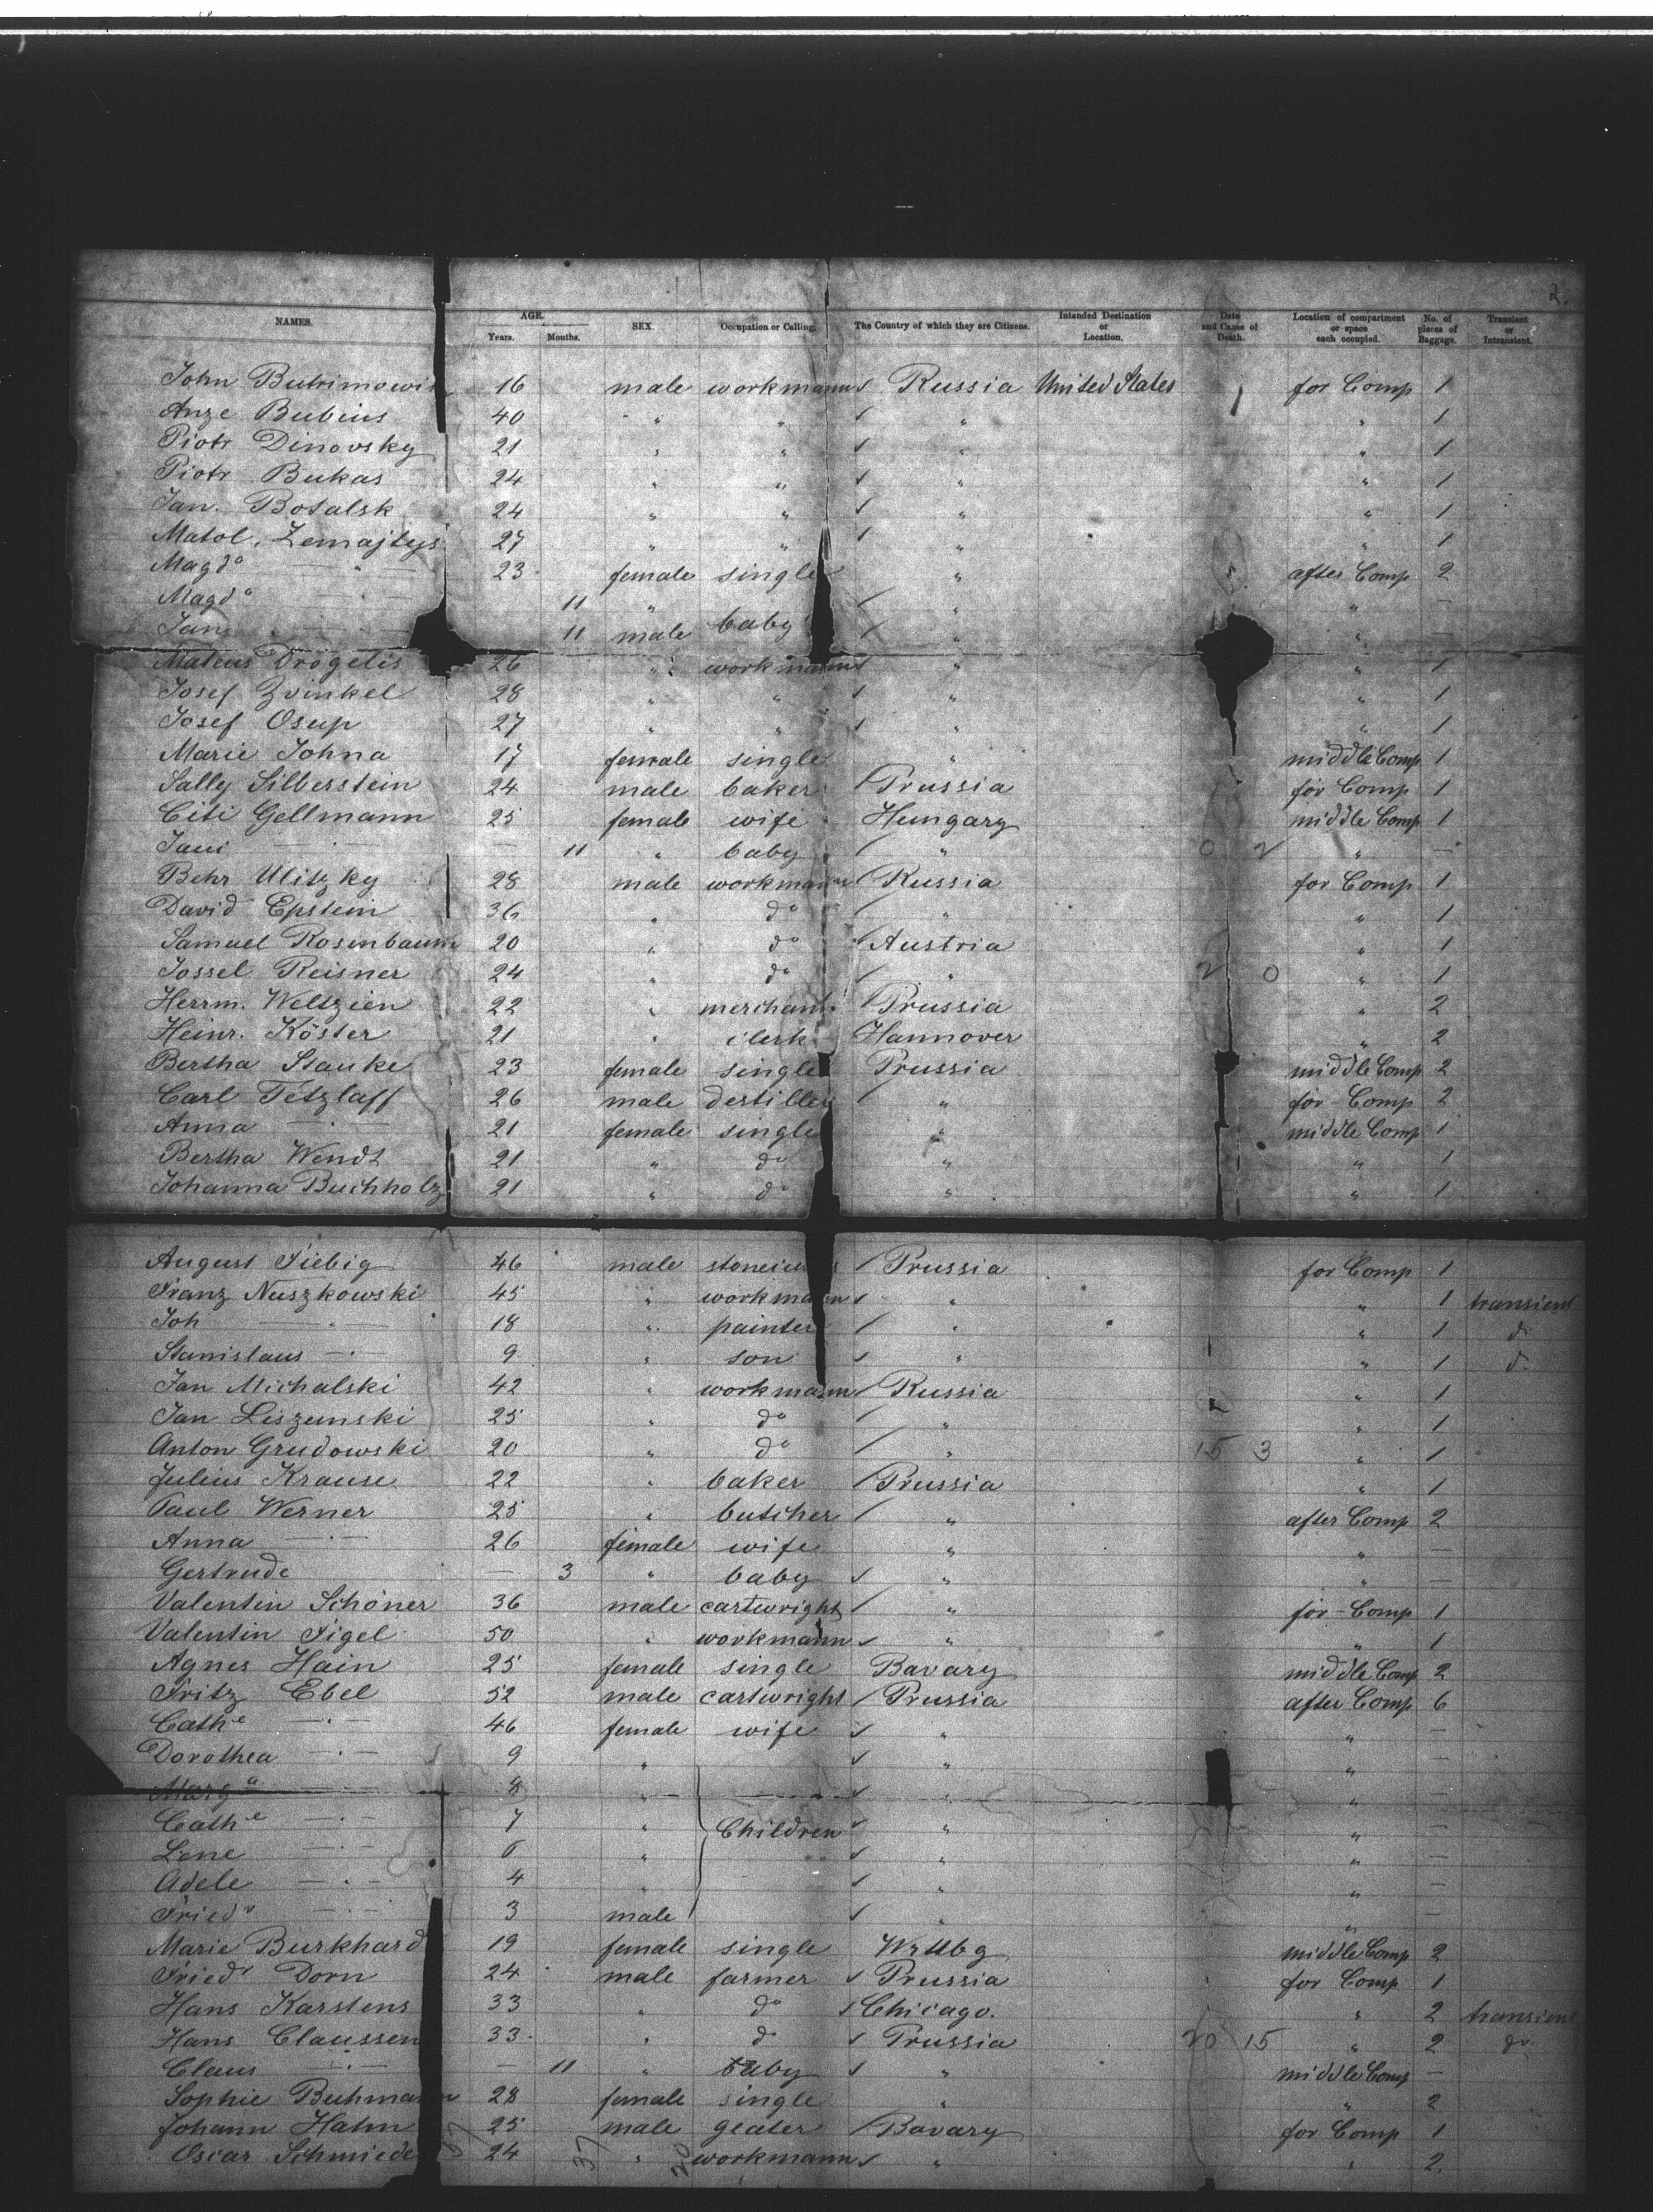 2.
NAMES. AGE. Years. Months. SEX. Occupation or Calling. The Country of which they are Citizens. Intended Destination or Location. Date and Cause of Death. Location of compartment or space each occupied. No. of pieces of Baggage. Transient or Intransient.
John 16 male workmann ✓ Russia United States for Comp 1
Anze Bubius 40 " " ✓ " " 1
Piotr Dinovsky 21 " " ✓ " " 1
Piotr Bukas 24 " " ✓ " " 1
Jan. Botalsk 24 " " ✓ " " 1
Matol. Zemajtys 27 " " ✓ " " 1
Magda — " — 23 female single " after Comp 2
Magda — " — 11 " ✓ " " —
Jan 11 male baby ✓ " " —
Mateus Drogelis 26 " workmann ✓ " " 1
Josef Zvinkel 28 " " ✓ " " 1
Josef Osup 27 " " ✓ " " 1
Marie Johna 17 female single " middle Comp 1
Sally Silberstein 24 male baker ✓ Prussia for Comp 1
Citi Gellmann 25 female wife Hungary middle Comp 1
Jani — " — — 11 " baby ✓ " 0 2 " —
Behr Ulitzky 28 male workmann ✓ Russia for Comp 1
David Epstein 36 " do ✓ " " 1
Samuel Rosenbaum 20 " do ✓ Austria " 1
Jossel Reisner 24 " do ✓ " 2 0 " 1
Herrm. Weltzien 22 " merchant ✓ Prussia " 2
Heinr. Köster 21 " clerk Hannover " 2
Bertha Stauke 23 female single Prussia middle Comp 2
Carl Tetzlaff 26 male destiller ✓ " for Comp 2
Anna — " — 21 female single " middle Comp 1
Bertha Wendt 21 " do " " 1
Johanna Buchholz 21 " do " " 1
August Fiebig 46 male ✓ Prussia for Comp 1
Franz Nuszkowski 45 " workmann ✓ " " 1 transient
Joh — " — 18 " painter ✓ " " 1 do
Stanislaus — " — 9 " son ✓ " " 1 do
Jan Michalski 42 " workmann ✓ Russia " 1
Jan Liszunski 25 " do ✓ " " 1
Anton Grudowski 20 " do ✓ " 15 3 " 1
Julius Krause 22 " baker ✓ Prussia " 1
Paul Werner 25 " butcher ✓ " after Comp 2
Anna — " — 26 female wife " " —
Gertrude — 3 " baby ✓ " " —
Valentin Schöner 36 male cartwright ✓ " for Comp 1
Valentin Figel 50 " workmann ✓ " " 1
Agnes Hain 25 female single Bavary middle Comp 2
Fritz Ebel 52 male cartwright ✓ Prussia after Comp 6
Cathe — " — 46 female wife ✓ " " —
Dorothea — " — 9 " ✓ " " —
Marga — " — 8 " ✓ " " —
Cathe — " — 7 " Children ✓ " " —
Lene — " — 6 " ✓ " " —
Adele — " — 4 " ✓ " " —
Friedr — " — 3 male ✓ " " —
Marie Burkhard 19 female single Wrttbg middle Comp 2
Friedr Dorn 24 male farmer ✓ Prussia for Comp 1
Hans Karstens 33 " do ✓ Chicago. " 2 transient
Hans Claussen 33 " do ✓ Prussia 20 15 " 2 do
Claus — " — — 11 " baby ✓ " middle Comp —
Sophie 28 female single " " 2
Johann Hahn 25 male geater ✓ Bavary for Comp 1
Oscar Schmiede 24 " workmann ✓ " " 2.
37